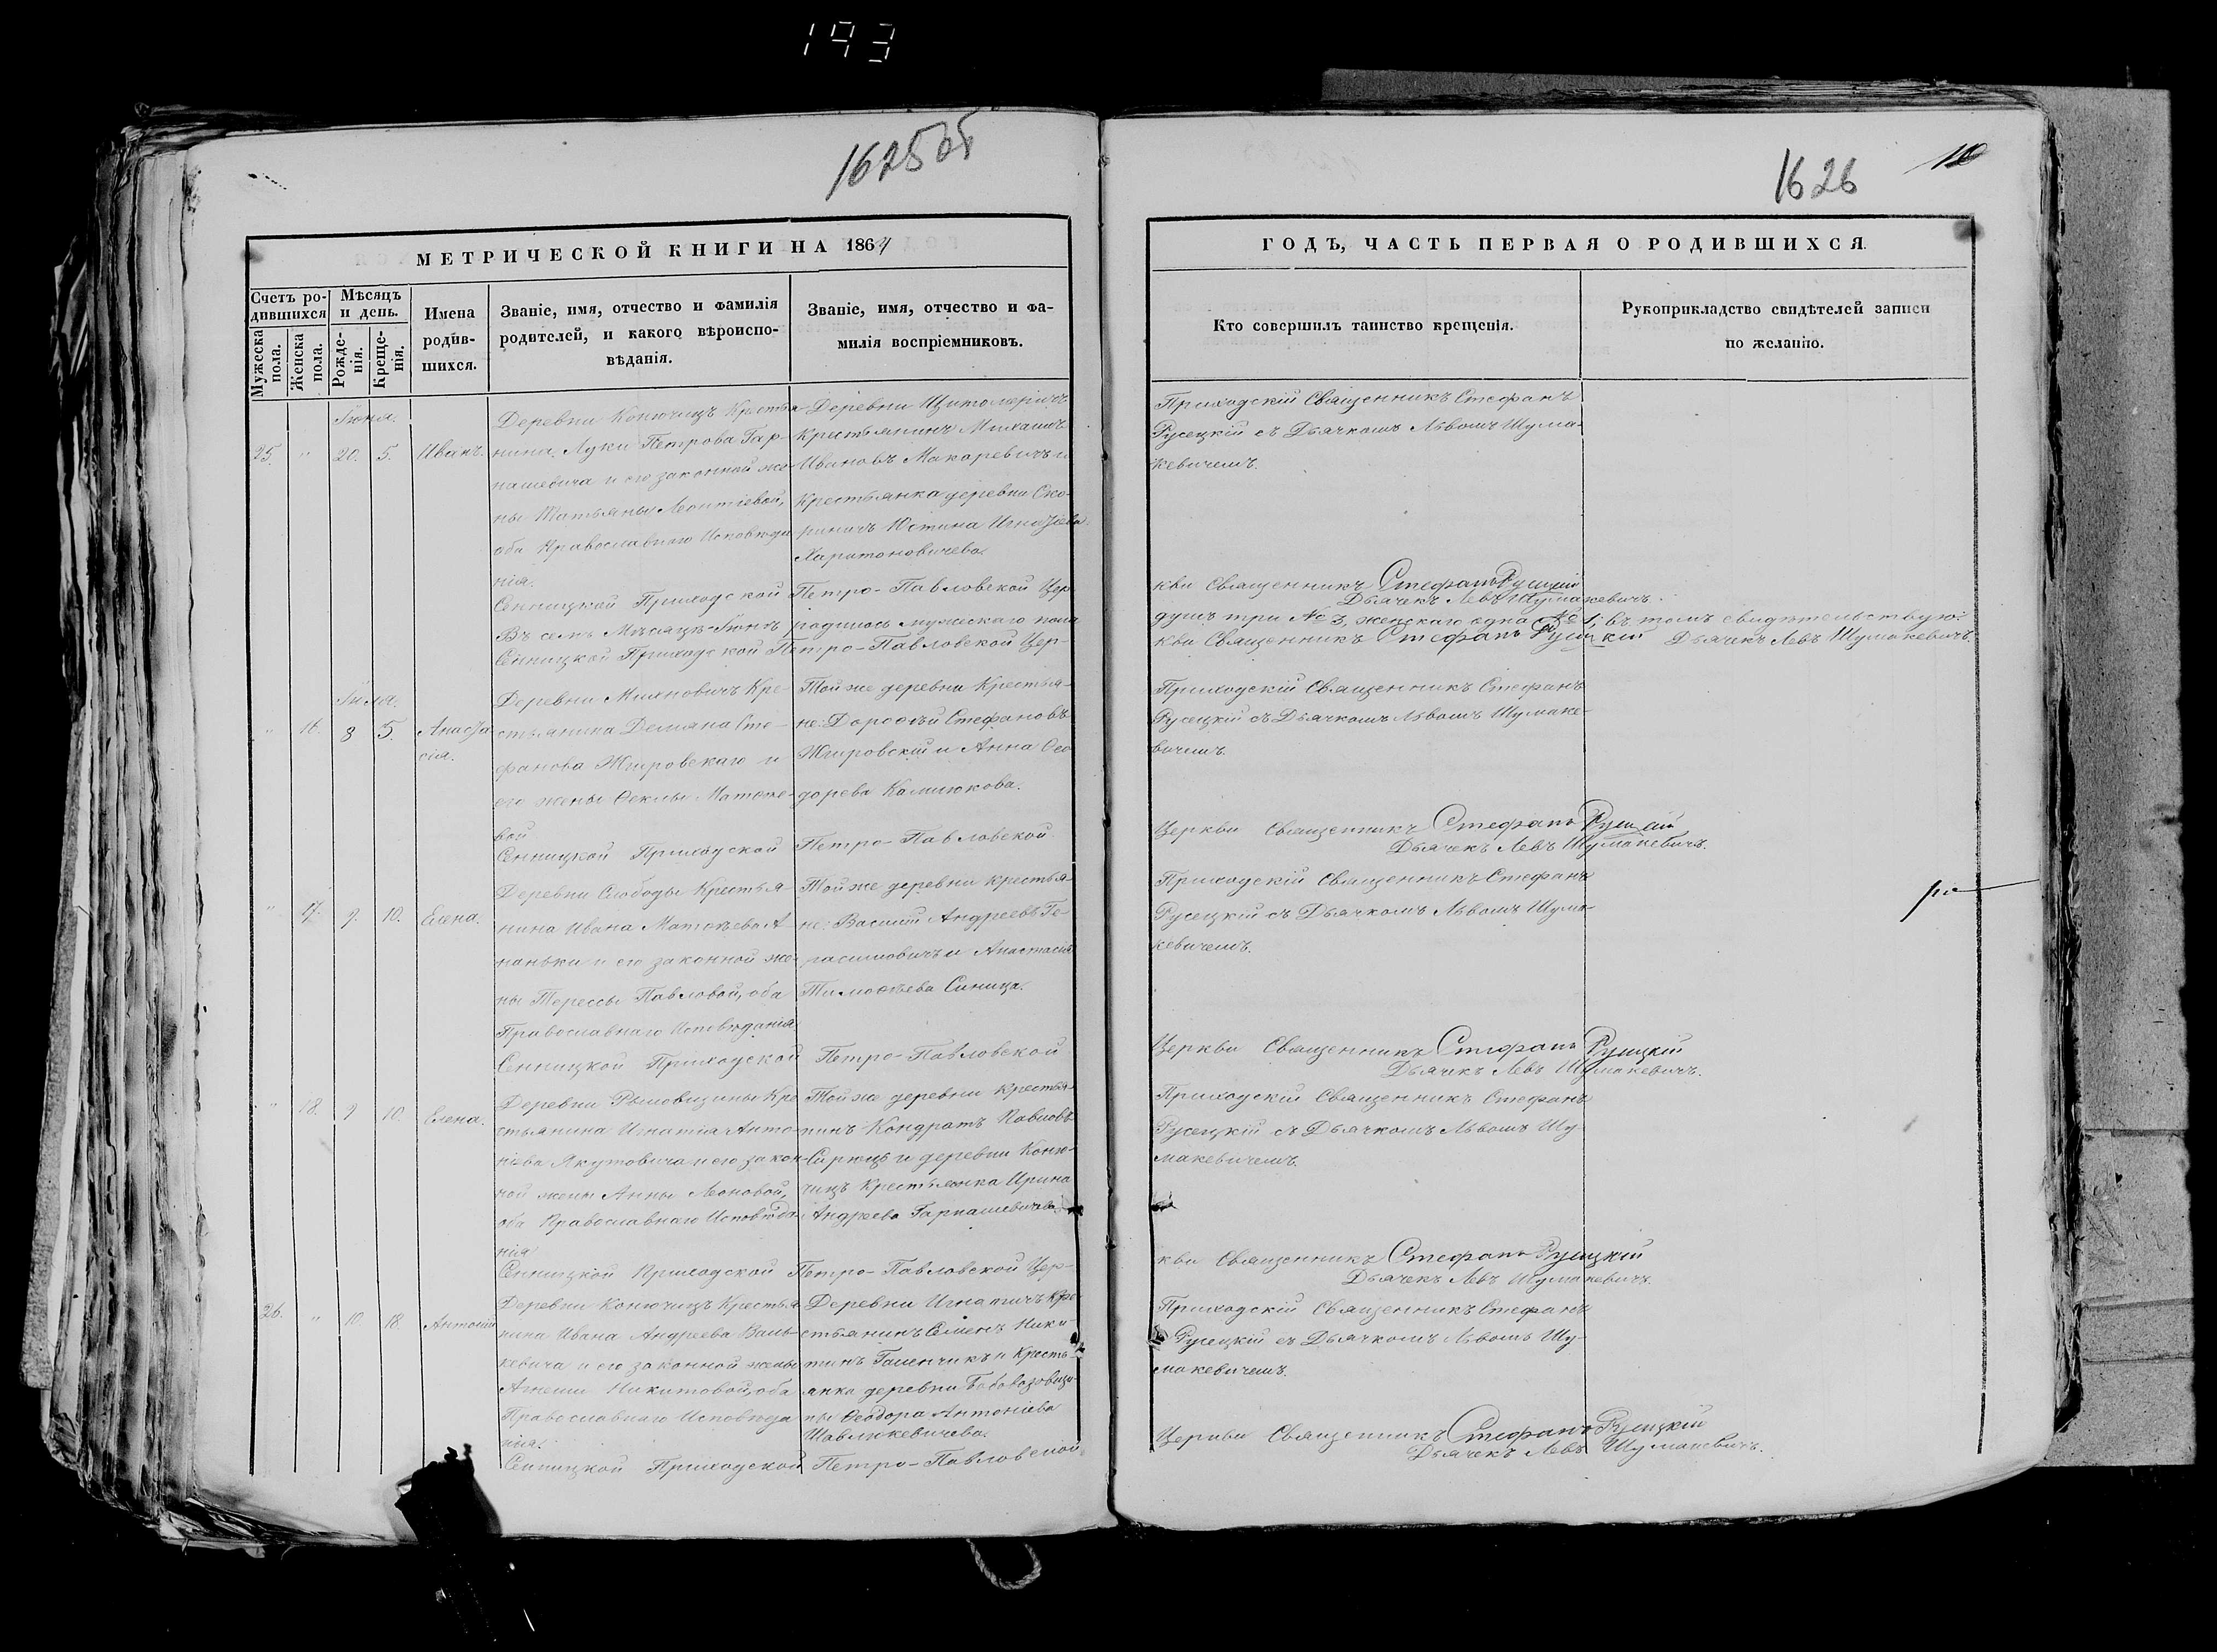 193
1625об
1626
10
МЕТРИЧЕСКОЙ КНИГИ НА 1864
ГОДЪ, ЧАСТЬ ПЕРВАЯ О РОДИВШИХСЯ.
Счетъ ро-
дившихся
Мужеска
пола.
Женска
пола.
Мѣсяцъ
и день.
Рожде-
нія.
Креще-
нія.
Имена
родив-
шихся.
Званіе, имя, отчество и фамилія
родителей, и какого вѣроиспо-
вѣданія.
Званіе, имя, отчество и фа-
милія воспріемниковъ.
Кто совершилъ таинство крещенія.
Рукоприкладство свидѣтелей записи
по желанію.
Іюня.
25. " 20. 5. Иванъ.
Деревни Конючицъ Крестья-
нина Луки Петрова Гар-
нашевича и его законной же-
ны Татьяны Леонтіевой,
оба Православнаго Исповѣда
нія.
Деревни Щитомеричъ
Крестьянинъ Михаилъ
Ивановъ Макаревичъ и
Крестьянка деревни Ско-
риничъ Юстина Игнатіева
Харитоновичева.
Приходскій Священникъ Стефанъ
Русецкій съ Дьячкомъ Львомъ Шума-
кевичемъ.
Сенницкой Приходской Петро-Павловской Цер-
кви Священникъ Стефанъ Русецкій
Дьячекъ Левъ Шумакевичъ.
Въ семъ Мѣсяцѣ Іюнѣ родилось мужескаго пола
душъ три № 3, женскаго одна № 1, въ томъ свидѣтельствую:
Сенницкой Приходской Петро-Павловской Цер-
кви Священникъ Стефанъ Русецкій Дьячекъ Левъ Шумакевичъ.
Іюля.
" 16. 3 5. Анаста
сія.
Деревни Михновичъ Кре-
стьянина Демяна Сте-
фанова Жировскаго и
его жены Ѳеклы Матѳѣе-
вой
Той же деревни Крестья-
не: Дороѳей Стефановъ
Жировскій и Анна Ѳео
дорева Камлюкова.
Приходскій Священникъ Стефанъ
Русецкій съ Дьячкомъ Львомъ Шумаке-
вичемъ.
Сенницкой Приходской Петро-Павловской
Церкви Священникъ Стефанъ Русецкій
Дьячекъ Левъ Шумакевичъ.
" 17. 9. 10. Елена.
Деревни Слободы Крестья-
нина Ивана Матѳѣева А-
наньки и его законной же-
ны Терессы Павловой, оба
Православнаго Исповѣданія
Той же деревни крестья-
не: Василій Андреевъ Ге-
расимовичъ и Анастасія
Тимоѳѣева Синица.
Приходскій Священникъ Стефанъ
Русецкій съ Дьячкомъ Львомъ Шума-
кевичемъ.
Сенницкой Приходской Петро-Павловской
Церкви Священникъ Стефанъ Русецкій
Дьячекъ Левъ Шумакевичъ.
" 18. 9 10. Елена.
Деревни Рымовщины Кре
стьянина Игнатія Анто-
ніева Якутовича и его закон-
ной жены Анны Леоновой,
оба Православнаго Исповѣда-
нія
Той же деревни Крестья-
нинъ Кондратъ Павловъ
и деревни Коню-
чицъ Крестьянка Ирина
Андреева Гарнашевичева.
Приходскій Священникъ Стефанъ
Русецкій съ Дьячкомъ Львомъ Шу-
макевичемъ.
Сенницкой Приходской Петро-Павловской Цер-
кви Священникъ Стефанъ Русецкій
Дьячекъ Левъ Шумакевичъ.
26. " 10. 18. Антоній
Деревни Конючицъ Крестья
нина Ивана Андреева Вань-
кевича и его законной жены
Агнеши Никитовой, оба
Православнаго Исповѣда
нія.
Деревни Игнатичъ Кре-
стьянинъ Семенъ Ники-
тинъ Гаенчикъ и Кресть-
янка деревни
ны Ѳеодора Антоніева
Шавлюкевичева.
Приходскій Священникъ Стефанъ
Русецкій съ Дьячкомъ Львомъ Шу-
макевичемъ.
Сенницкой Приходской Петро-Павловской
Церкви Священникъ Стефанъ Русецкій
Дьячекъ Левъ Шумакевичъ.